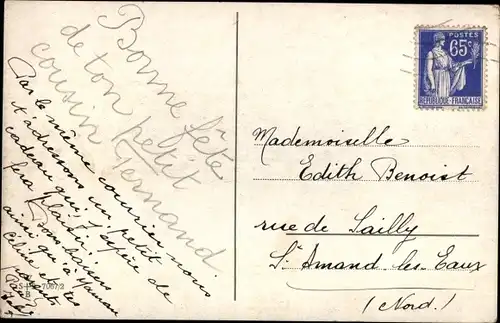 Bonne fête
de ton petit
cousin Fernand
Par le même courrier nous
t'adressons un petit
cadeau qui, j'espère te
fera plaisir.
Bons baisers
ainsi qu'à Maman
Céline et
POSTES
65c
RÉPUBLIQUE FRANÇAISE
Mademoiselle
Edith Benoist
rue de Sailly
St Amand les Eaux
(Nord.)
7067/2